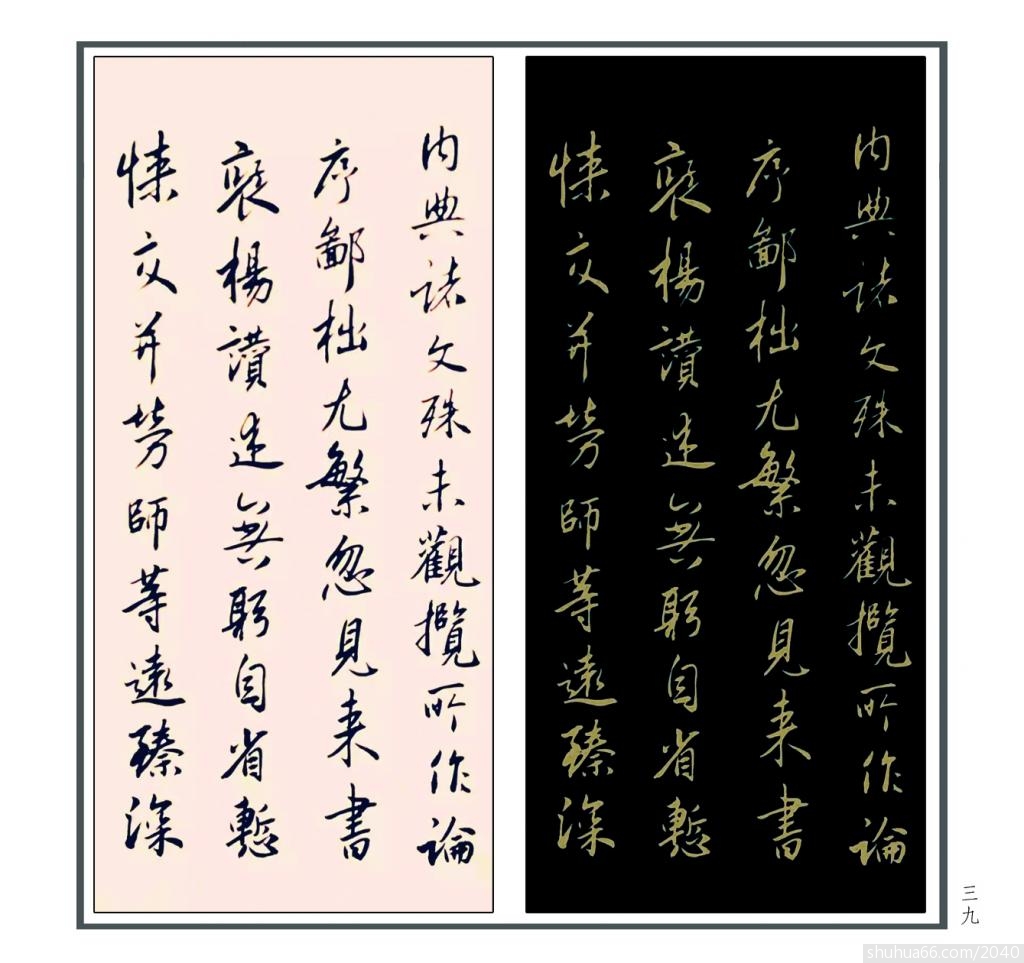 內典諸文殊未觀攬所作論
序鄙柮尤繁忽見来書
褒楊讃述無躬自省慙
悚交并勞師等遠臻深
內典諸文殊未觀攬所作論
序鄙柮尤繁忽見来書
褒楊讃述無躬自省慙
悚交并勞師等遠臻深
三九
shuhua66.com/2040